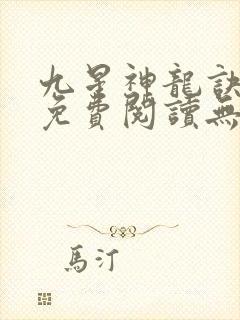 九星神龍訣
免費閱讀無
馬汀